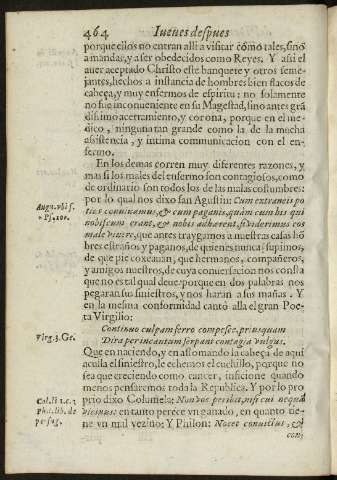 464 Iueues despues
porque ellos no entran alli a visitar cómo tales, sino
a mandar, y a ser obedecidos como Reyes. Y assi el
auer aceptado Christo este banquete y otros seme-
jantes, hechos a instancia de hombres bien flacos de
cabeça, y muy enfermos de espiritu; no solamente
no fue inconueniente en su Magestad, sino antes grã
dissimo acertamiento, y corona, porque en el me-
dico, ninguna tan grande como la de la mucha
assistencia, y intima communicacion con el en-
fermo.
En los demas corren muy diferentes razones, y
mas si los males del enfermo son contagiosos, como
de ordinario son todos los de las malas costumbres:
por lo qual nos dixo san Agustin: Cum extraneis po
tius conuiuamus, & cum paganis, quàm cum his qui
nobiscum erant, & nobis adhærent, si viderimus eos
malè viuere, que antes traygamos a nuestras casas hõ
bres estraños y paganos, de quienes nunca supimos,
de que pie coxeauan, que hermanos, compañeros,
y amigos nuestros, de cuya conuersacion nos consta
que no es tal qual deue: porque en dos palabras nos
pegaran su siniestro, y nos haran a sus mañas. Y
en la mesma conformidad cantò alla el gran Poe-
ta Virgilio:
Continuo culpam ferro compesce, priusquam
Dira per incautum serpant contagia vulgus.
Que en naciendo, y en assomando la cabeça de aqui
aculla el siniestro, le echemos el cuchillo, porque no
sea que creciendo como cancer, inficione quando
menos pensaremos toda la Republica. Y por lo pro
prio dixo Columela: Non vos peribit, nisi cui nequã
vicinus: en tanto perece vn ganado, en quanto tie-
ne vn mal vezino: Y Philon: Nocet conuictus, &
con-
Augu. vbi s.
Psal. 100.
Virg. 3. Ge.
Col. li 1. c. 3
Phil. lib. de